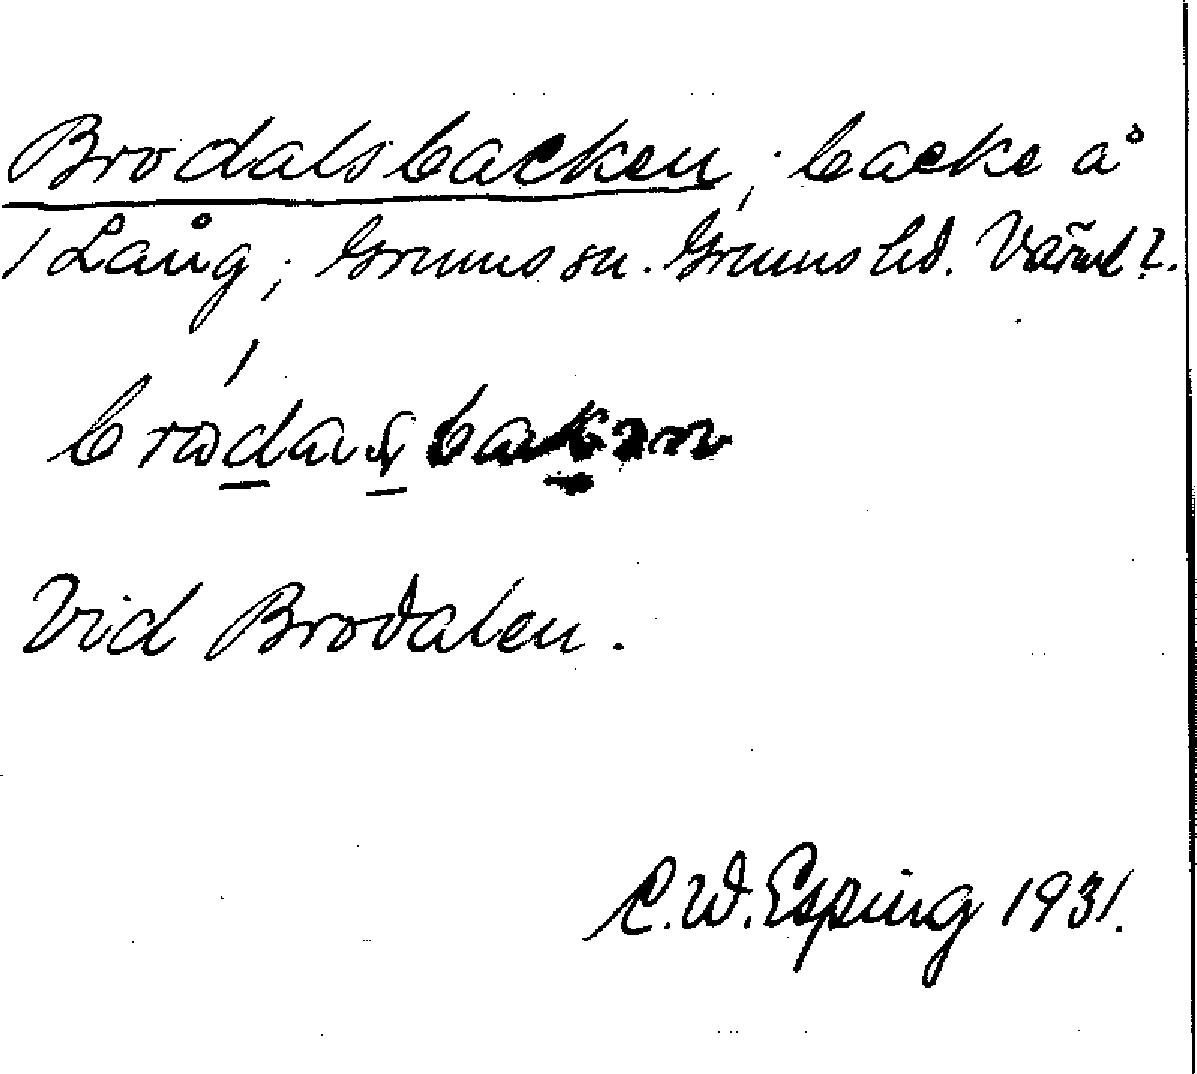 Brodalsbacken, backe å
1 Lång, Grums sn. Grums hd. Värml.
Vid Brodalen.
C. W. Esping 1931.